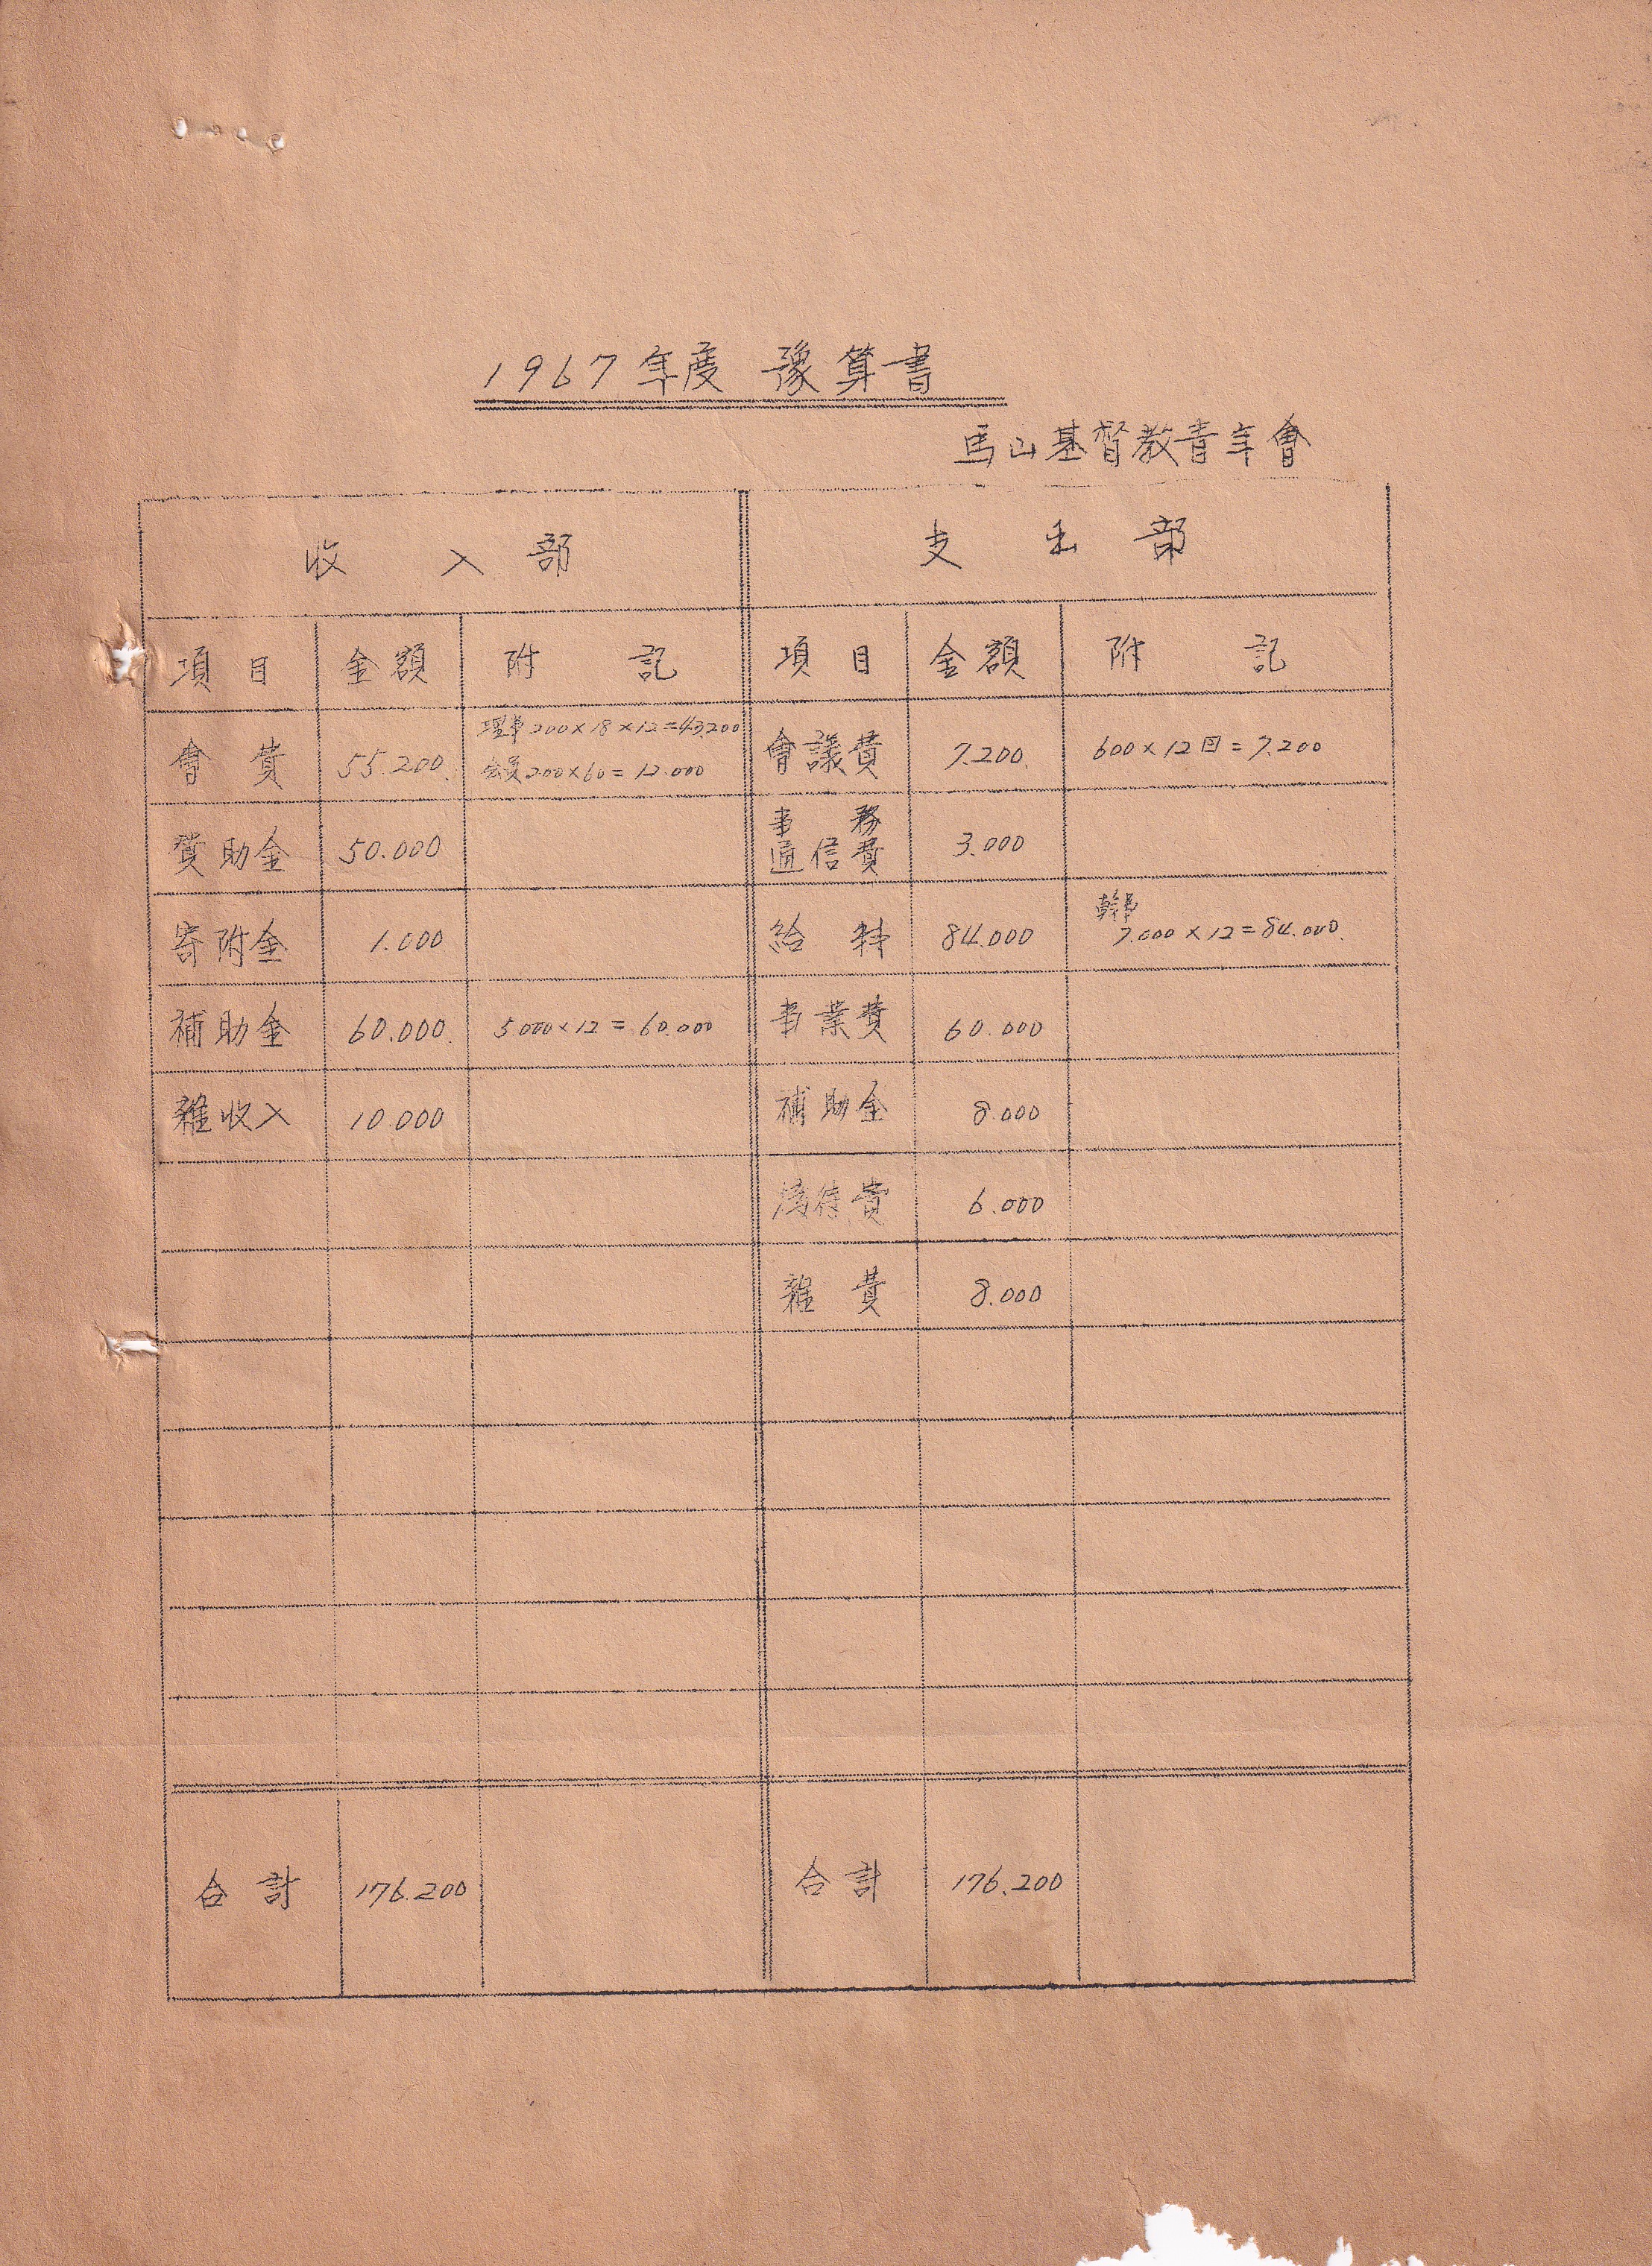 1967年度 豫算書
馬山基督教青年會
收入部 支出部
項目 金額 附記 項目 金額 附記
會費 55.200. 理事200×18×12=43.200 會議費 7.200. 600×12回=7.200
会員200×60=12.000
贊助金 50.000 事務通信費 3.000
寄附金 1.000 給料 84.000 幹事
7.000×12=84.000.
補助金 60.000. 5.000×12=60.000 事業費 60.000
雜收入 10.000 補助金 8.000
待費 6.000
雜費 8.000
合計 176.200 合計 176.200